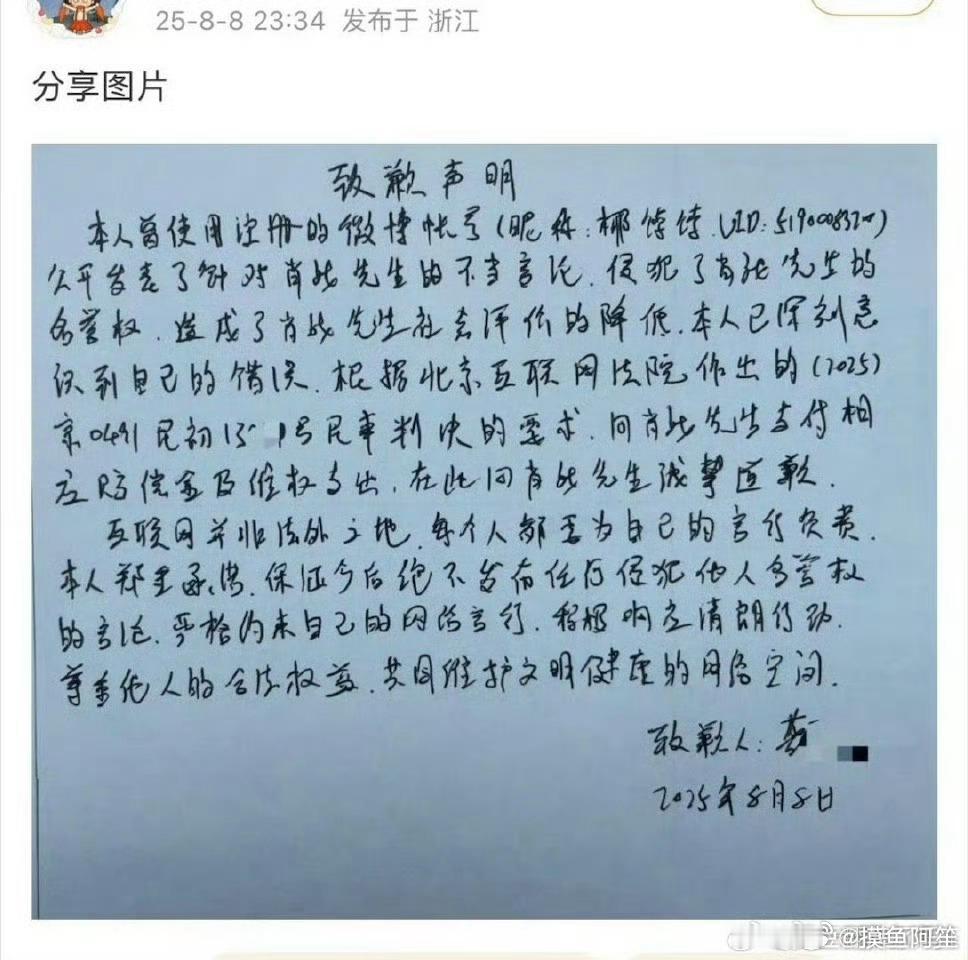 25-8-8 23:34 发布于 浙江
分享图片
致歉声明
本人曾使用注册的微博帐号(昵称:椰饽饽.UID:519008320)
公开发表了针对肖战先生的不当言论,侵犯了肖战先生的
名誉权,造成了肖战先生社会评价的降低.本人已深刻意
识到自己的错误.根据北京互联网法院作出的(2025)
京0491民初15 号民事判决的要求,向肖战先生支付相
应赔偿金及维权支出,在此向肖战先生诚挚道歉.
互联网并非法外之地,每个人都要为自己的言行负责.
本人郑重承诺,保证今后绝不发布任何侵犯他人名誉权
的言论.严格约束自己的网络言行.积极响应清朗行动.
尊重他人的合法权益.共同维护文明健康的网络空间.
致歉人:
2025年8月8日
@摸鱼阿笙